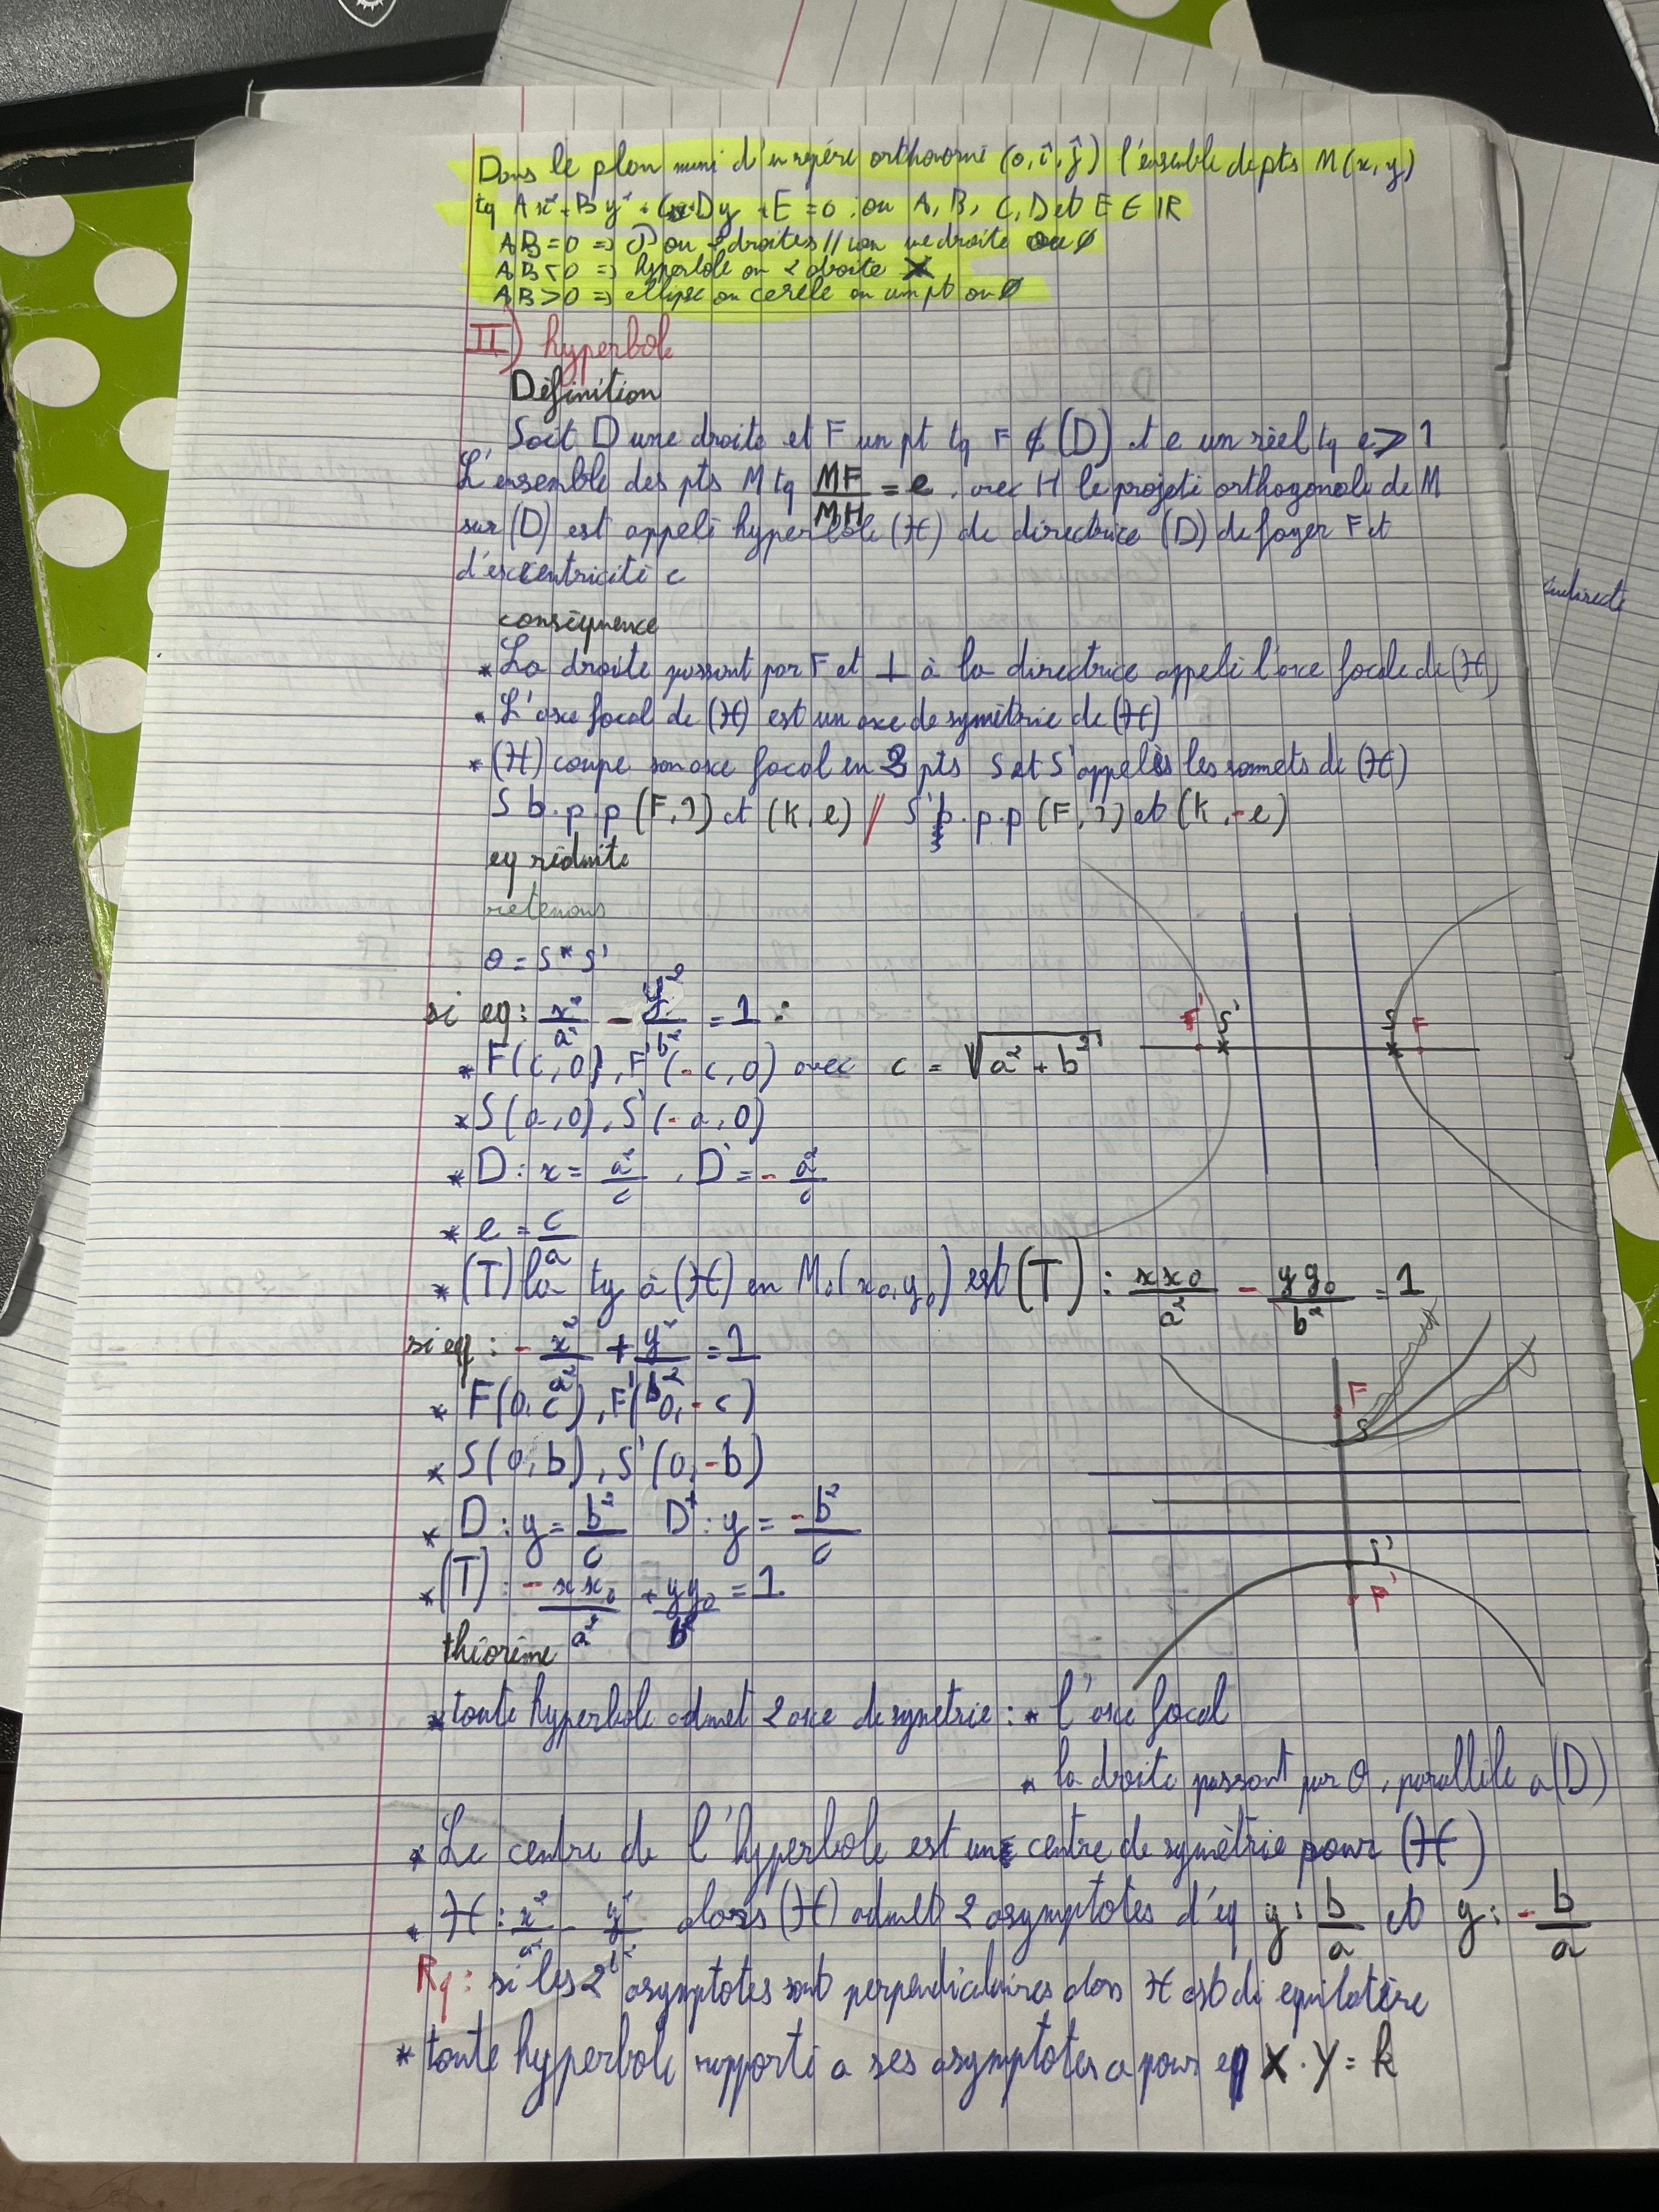 Dans le plan muni d'un repère orthonormé (o, i, j) l'ensemble de pts M(x, y)
tq Ax² + By² + Cx + Dy + E = 0 ; ou A, B, C, D et E ∈ IR
AB = 0 => P ou 2 droites // ou une droite ou ∅
AB < 0 => hyperbole ou 2 droite X
AB > 0 => ellipse ou cercle ou un pt ou ∅
II) hyperbole
Définition
Soit D une droite et F un pt tq F ∉ (D) et e un réel tq e > 1
L'ensemble des pts M tq MF/MH = e, avec H le projeté orthogonale de M
sur (D) est appelé hyperbole (H) de directrice (D) de foyer F et
d'excentricité e
conséquence
* La droite passant par F et ⊥ à la directrice appelé l'axe focale de (H)
* L'axe focal de (H) est un axe de symétrie de (H)
* (H) coupe son axe focal en 2 pts S et S' appelés les somets de (H)
S b.p.p (F, 1) et (K, e) // S' b.p.p (F, 1) et (K, -e)
eq réduite
retenons
O = S * S'
si eq : x²/a² - y²/b² = 1 :
* F(c, 0), F'(-c, 0) avec c = √(a² + b²)
* S(a, 0), S'(-a, 0)
* D : x = a²/c , D' = - a²/c
* e = c/a
* (T) la tg à (H) en M₀(x₀, y₀) est (T) : xx₀/a² - yy₀/b² = 1
F' S' S F
si eq : - x²/a² + y²/b² = 1
* F(0, c), F'(0, -c)
* S(0, b), S'(0, -b)
* D : y = b²/c D' : y = -b²/c
* (T) : - xx₀/a² + yy₀/b² = 1
F
S
S'
F'
théorème
* toute hyperbole admet 2 axe de symetrie : * l'axe focal
* la droite passant par O, parallèle a (D)
* Le centre de l'hyperbole est un centre de symètrie pour (H)
* H : x²/a² - y²/b² alors (H) admet 2 asymptotes d'éq y : b/a et y : - b/a
Rq : si les 2 asymptotes sont perpendiculaires alors H est di equilatère
* toute hyperbole rapporté a ses asymptotes a pour eq X . Y = k
endirecte